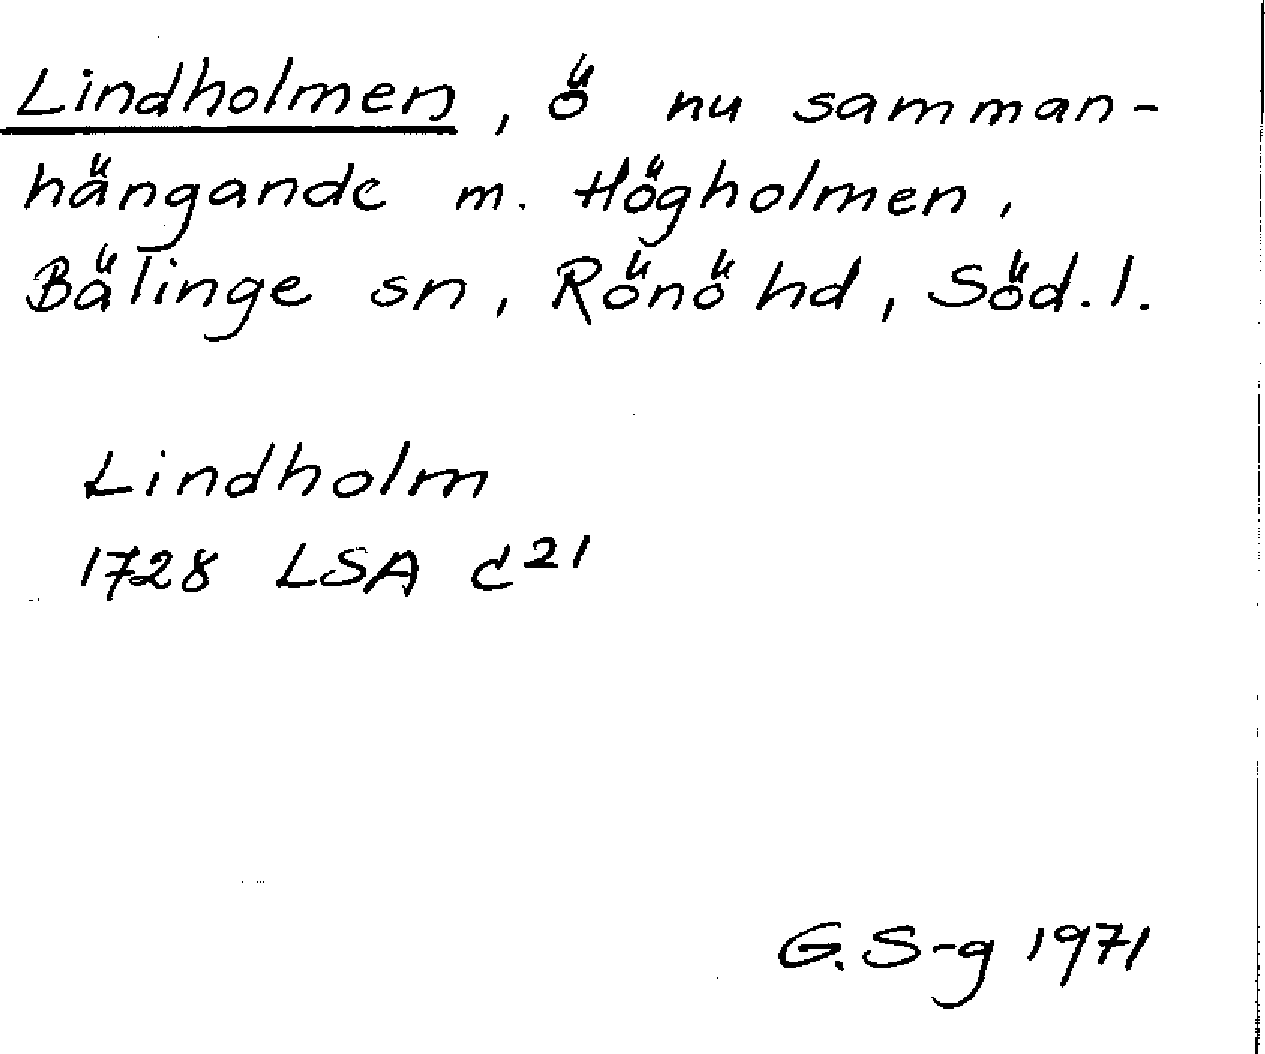 Lindholmen, ö nu samman-
hängande m. Högholmen,
Bälinge sn, Rönö hd, Söd. l.
Lindholm
1728 LSA C²¹
G. S-g 1971